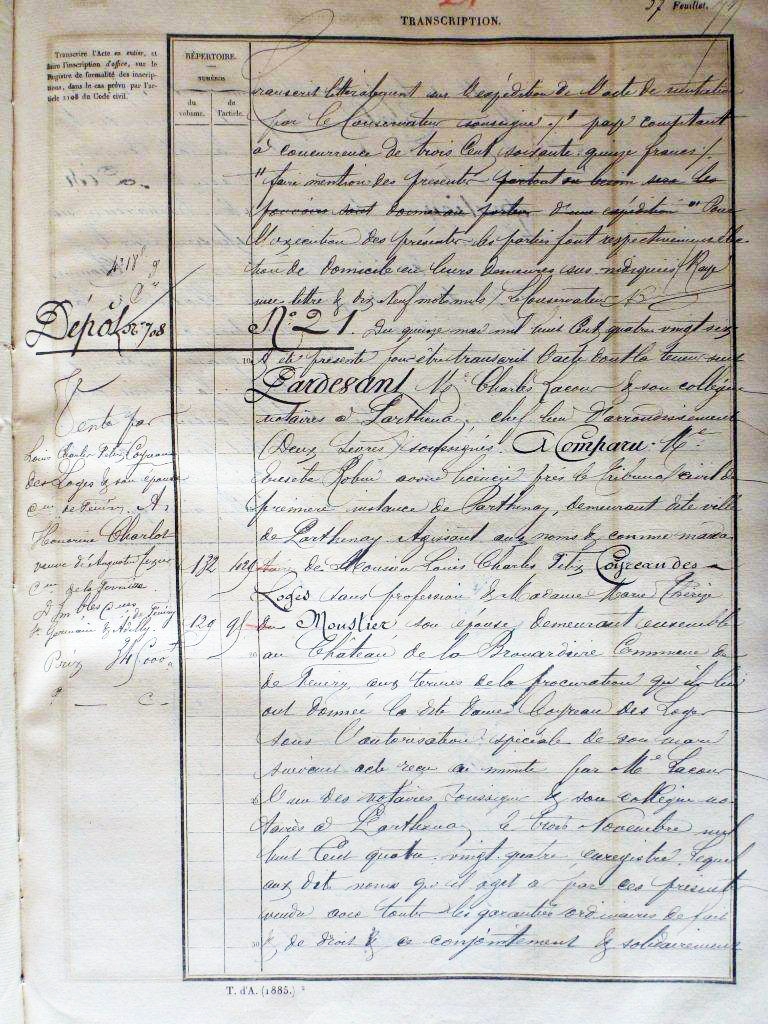 37 Feuillet.
TRANSCRIPTION.
Transcrire l'Acte en entier, et
faire l'inscription d'office, sur le
Registre de formalité des inscrip-
tions, dans le cas prévu par l'ar-
ticle 2108 du Code civil.
RÉPERTOIRE.
NUMÉROS
du volume.
de l'article.
transcrit littéralement sur l'expédition de l'acte de
par le Conservateur soussigné payé comptant
à concurrence de trois Cent soixante quinze francs /.
" faire mention des présentes partout où besoin sera les
pouvoirs sont donnés au porteur d'une expédition " Pour
l'exécution des présentes les parties font respectivement élec-
tion de domicile en leurs demeures sus-indiquées / Rayé
une lettre & dix neuf mots nuls / Le Conservateur
Dépôt N° 708
N° 21. Du quinze mai mil huit Cent quatre vingt six
10 A été présenté pour être transcrit l'acte dont la teneur suit
Pardevant Me Charles Lacour & son collègue
notaires à Parthenay, chef lieu d'arrondissement
(Deux Sèvres) soussignés. A Comparu Me
Eusèbe Robin avoué licencié près le Tribunal civil de
première instance de Parthenay, demeurant dite ville
de Parthenay. Agissant aux noms & comme manda-
taire de Monsieur Louis Charles Félix Coyreau des
Loges sans profession & Madame Marie Thérèse
du Moustier son épouse demeurant ensemble
20 au Château de la Brouardière Commune de
de Fenery, aux termes de la procuration qu'ils lui
ont donnée la dite Dame Coyreau des Loges
sous l'autorisation spéciale de son mari
suivant acte reçu en minute par Me Lacour
l'un des notaires soussignés & son collègue no-
taires à Parthenay le trois Novembre mil
huit Cent quatre-vingt-quatre enregistré. Lequel
aux dits noms qu'il agit a par ces présentes
vendu avec toutes les garanties ordinaires de fait
30 & de droit & ce conjointement & solidairement
Vente par
Louis Charles Félix Coyreau
des Loges & son épouse
Cne de Fenery. A
Honorine Charlot
veuve d'Auguste
Cne de la
Imbles Cnes de Fenery
St Germain & Adilly
Prix 34,000f
132
129
T. d'A. (1885.)